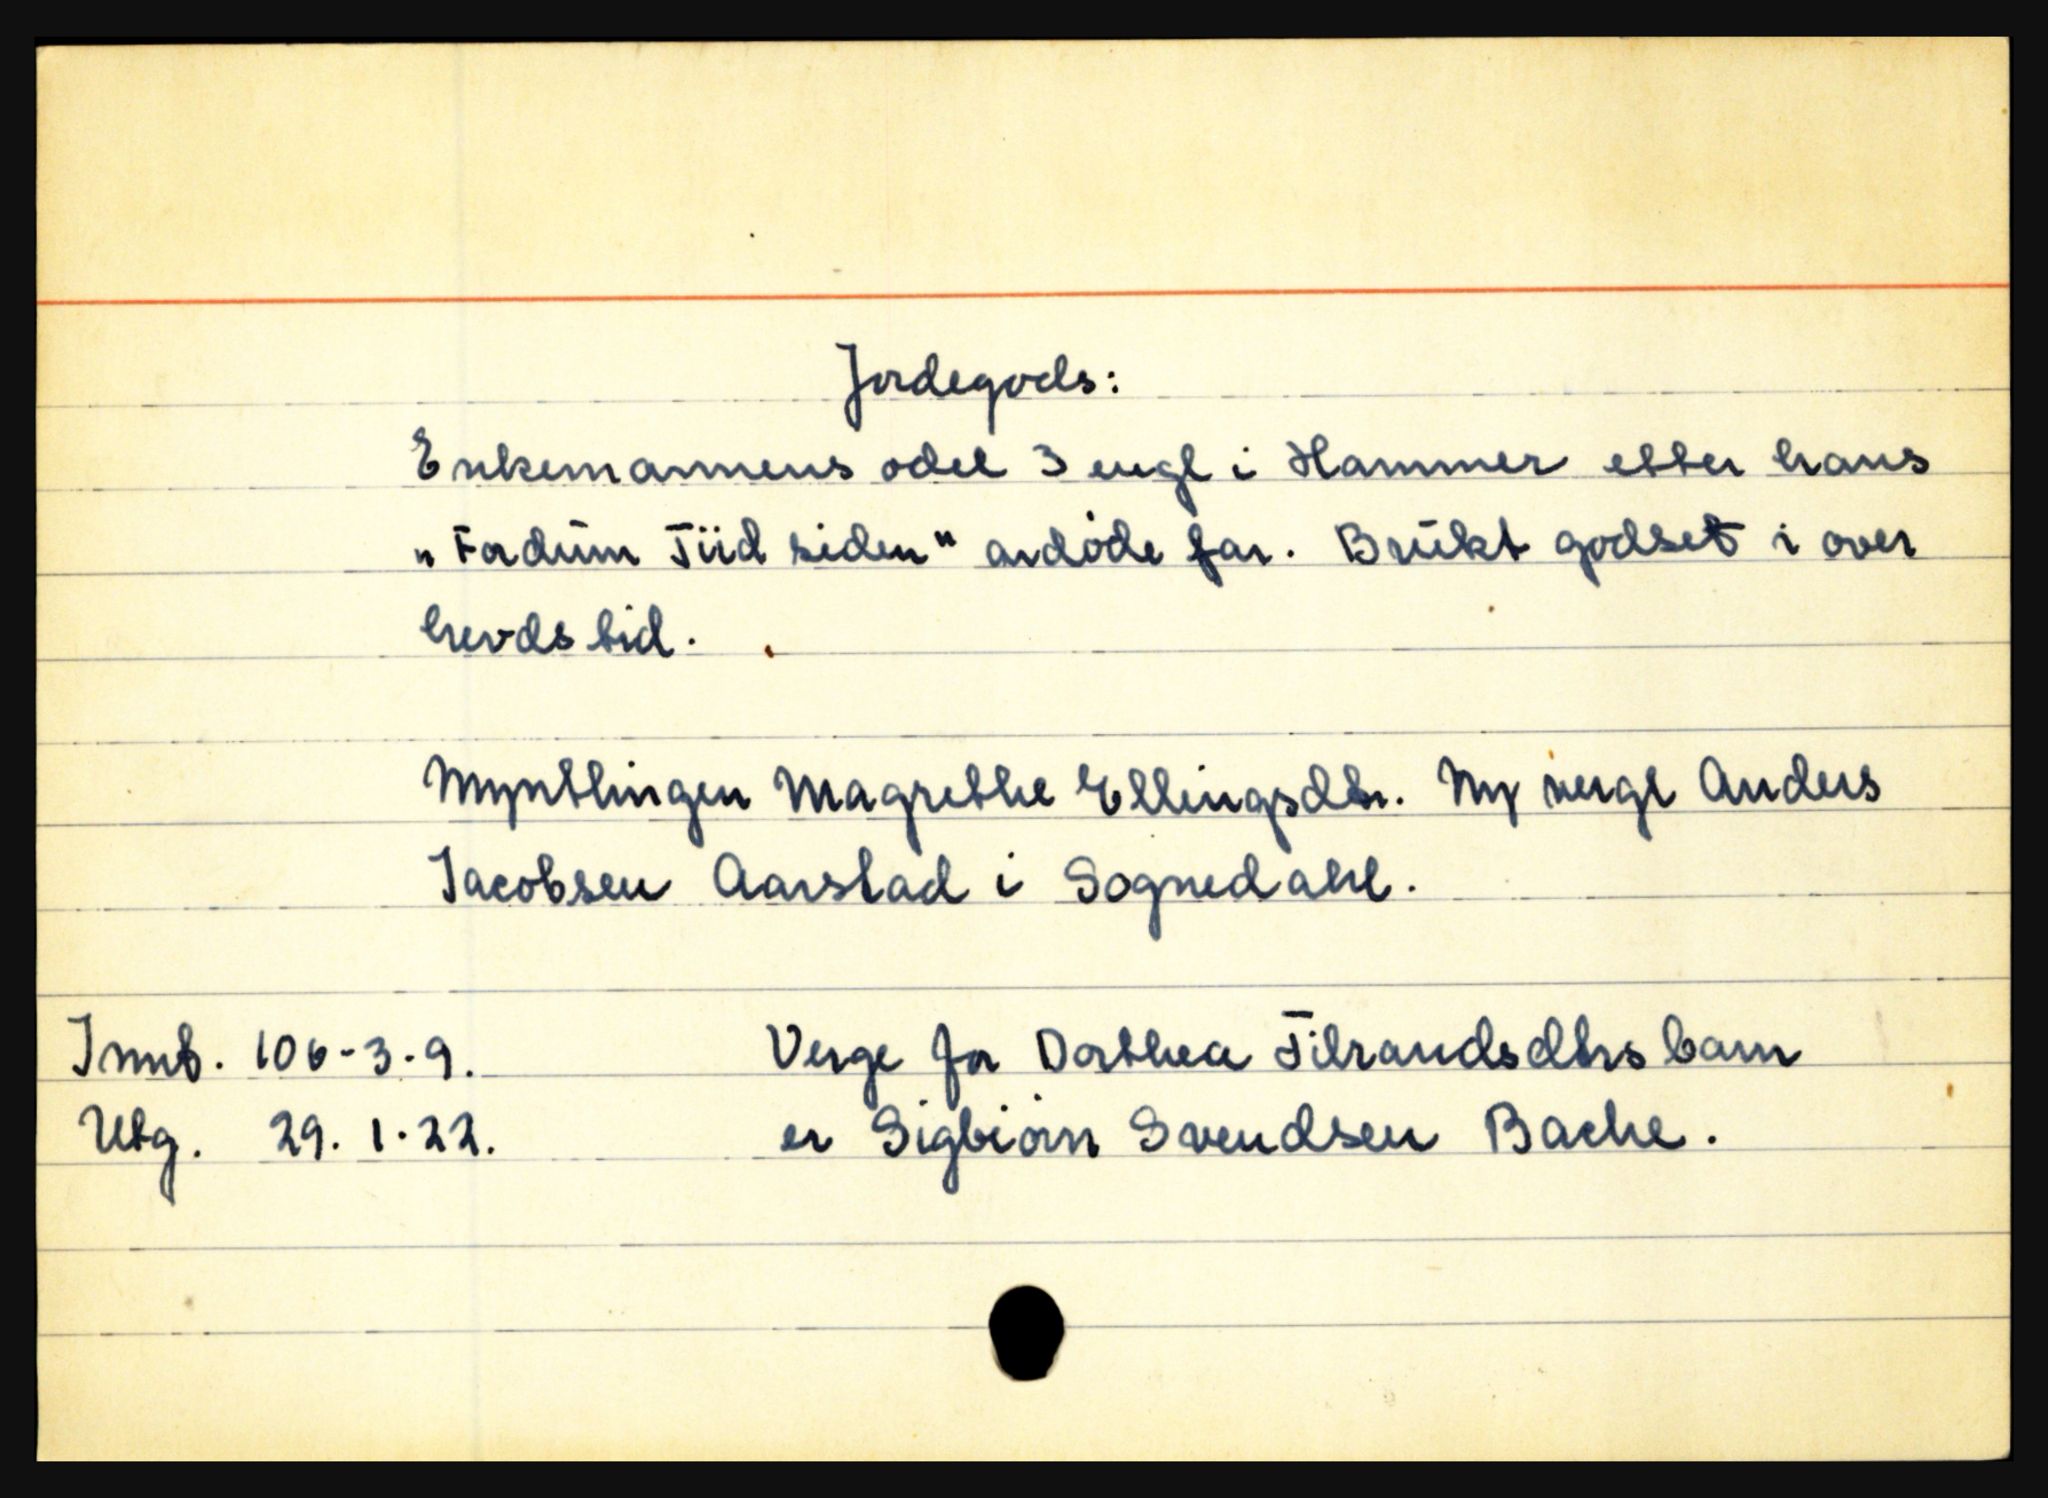 Jordegods:
Enkemannens odel 3 engl i Hammer etter hans
"Fordum Tiid siden" avdøde far. Brukt godset i over
hevds tid.
Myntlingen Magrethe Ellingsdtr. Ny verge Anders
Jacobsen Aarstad i Sognedahl.
Innt. 106-3-9. Verge for Dorthea Tilrandsdtrs barn
Utg. 29.1.22. er Sigbiørn Svendsen Bache.